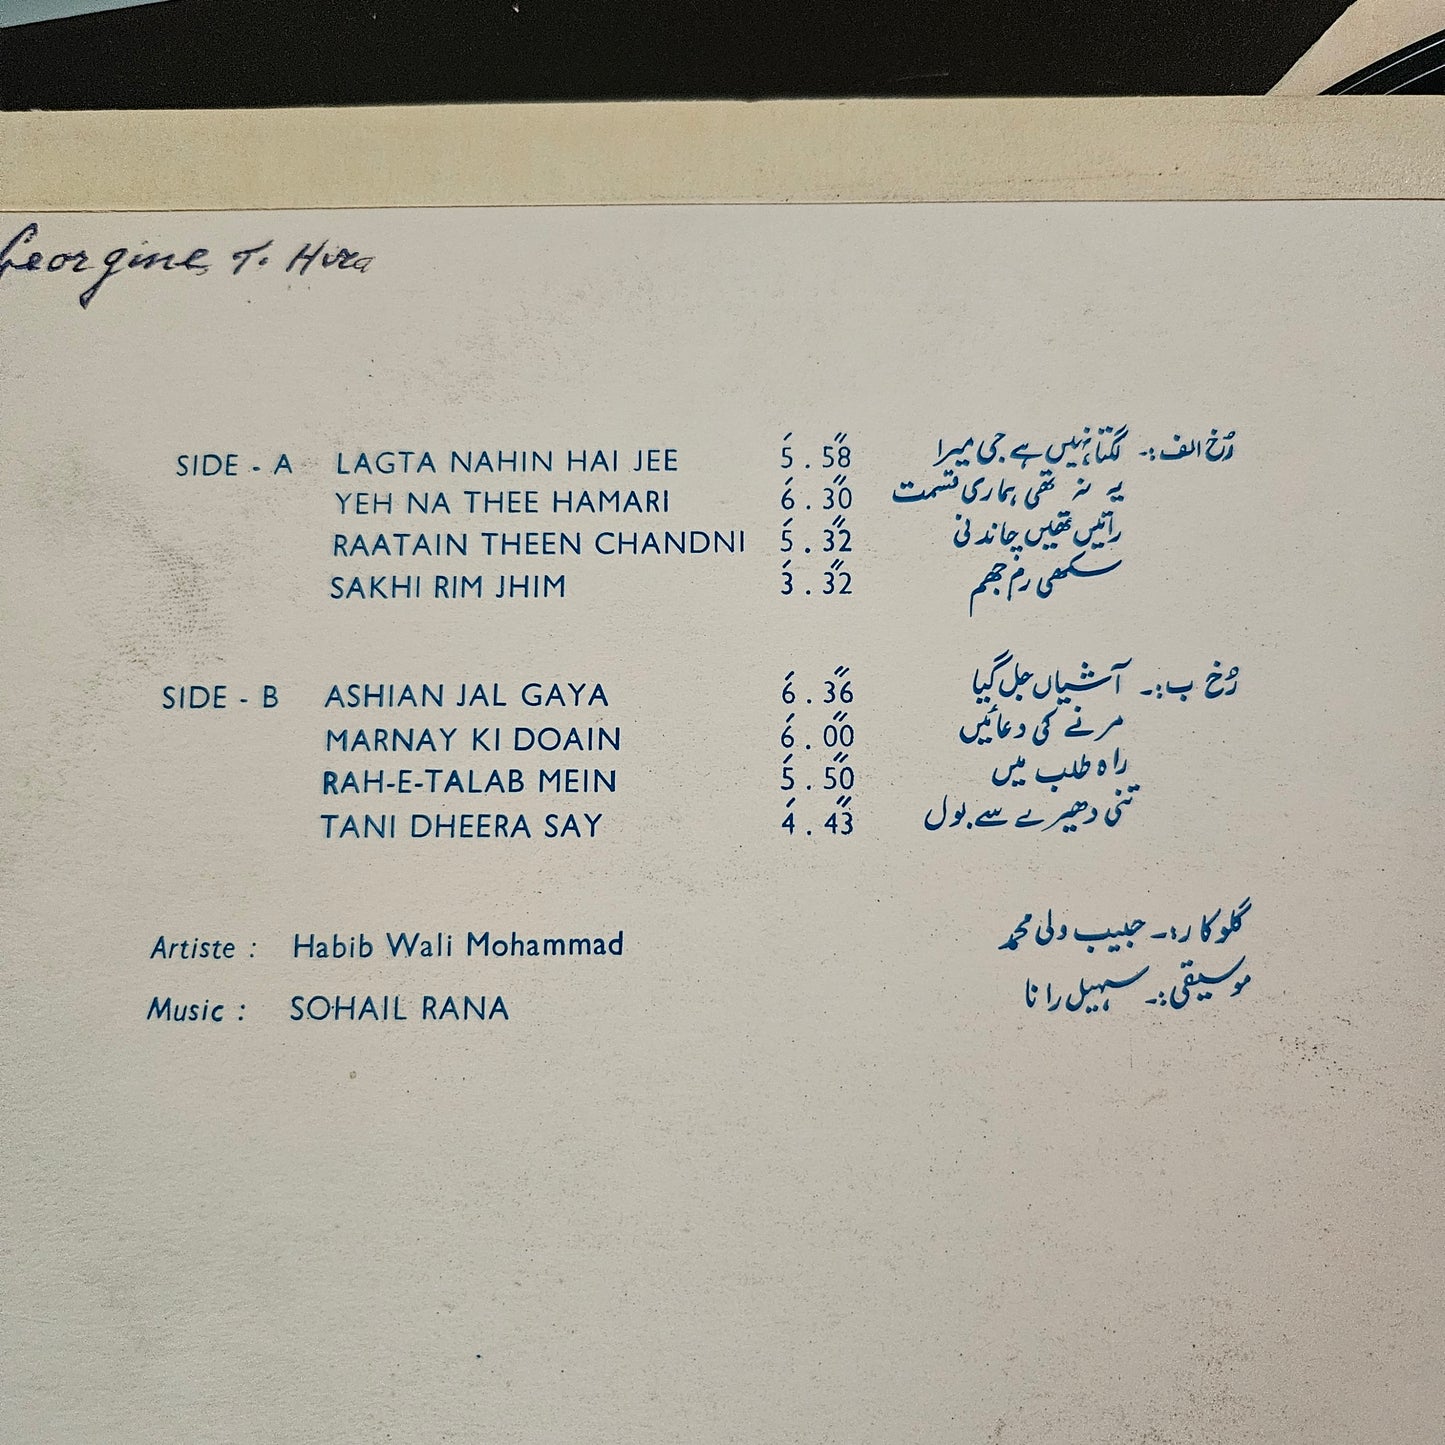 Georgine T. Hira
SIDE - A LAGTA NAHIN HAI JEE 5′. 58″ رُخ الف :۔ لگتا نہیں ہے جی میرا
YEH NA THEE HAMARI 6′. 30″ یہ نہ تھی ہماری قسمت
RAATAIN THEEN CHANDNI 5′. 32″ راتیں تھیں چاندنی
SAKHI RIM JHIM 3′. 32″ سکھی رم جھم
SIDE - B ASHIAN JAL GAYA 6′. 36″ رُخ ب :۔ آشیاں جل گیا
MARNAY KI DOAIN 6′. 00″ مرنے کی دعائیں
RAH-E-TALAB MEIN 5′. 50″ راہ طلب میں
TANI DHEERA SAY 4′. 43″ تنی دھیرے سے بول
Artiste : Habib Wali Mohammad گلوکار :۔ حبیب ولی محمد
Music : SOHAIL RANA موسیقی :۔ سہیل رانا